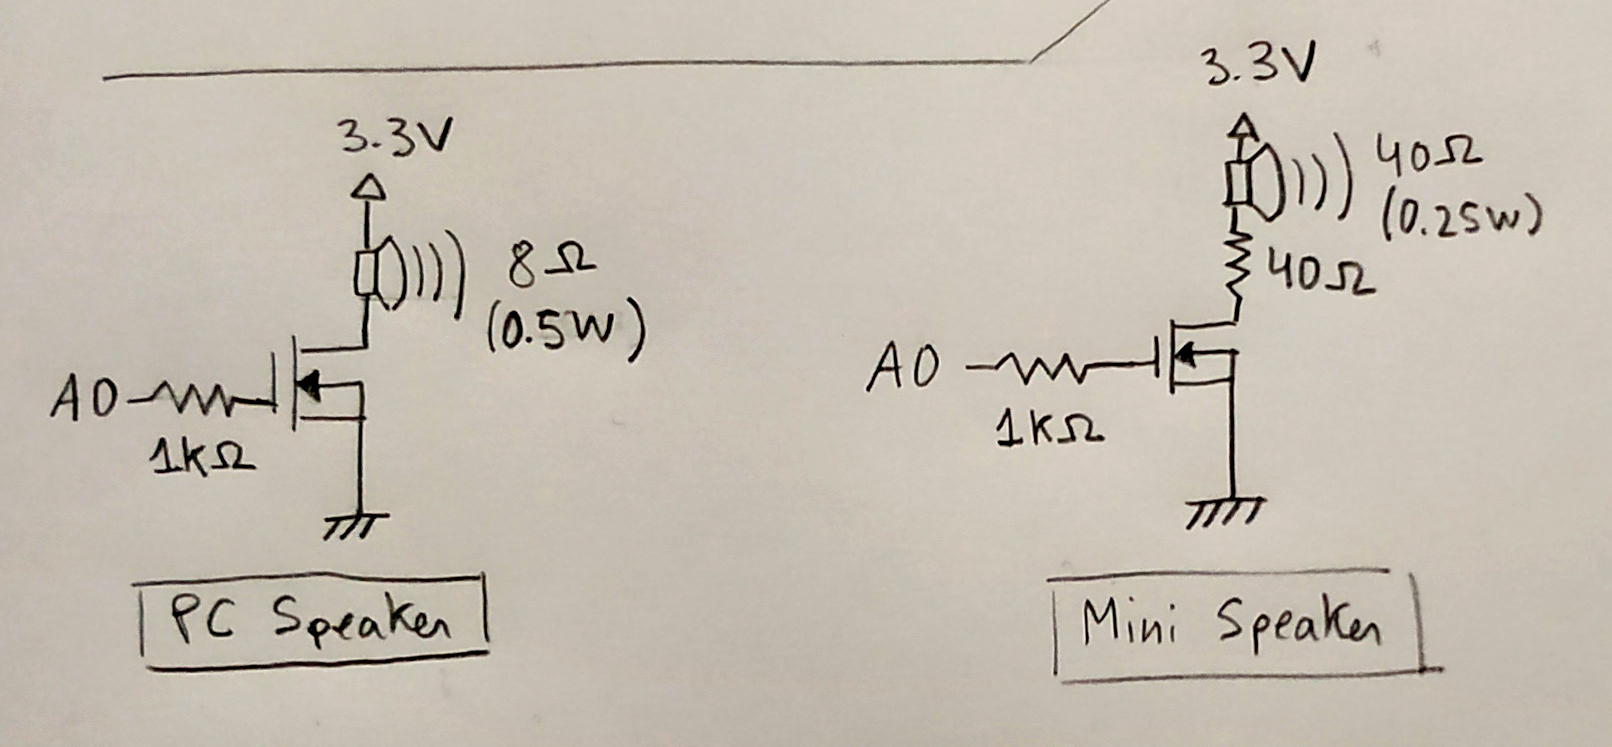 3.3V
8Ω
(0.5W)
A0
1kΩ
PC Speaker
3.3V
40Ω
(0.25W)
40Ω
A0
1kΩ
Mini Speaker